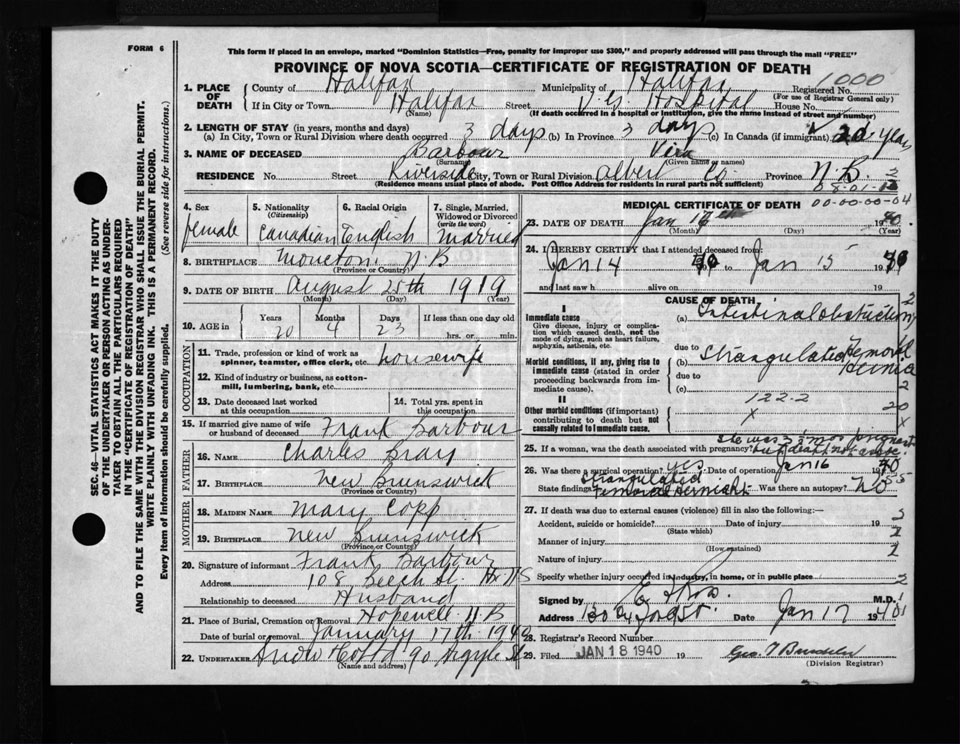 FORM 6
This form if placed in an envelope, marked "Dominion Statistics—Free, penalty for improper use $300," and properly addressed will pass through the mail "FREE"
PROVINCE OF NOVA SCOTIA—CERTIFICATE OF REGISTRATION OF DEATH
SEC. 46—VITAL STATISTICS ACT MAKES IT THE DUTY OF THE UNDERTAKER OR PERSON ACTING AS UNDERTAKER TO OBTAIN ALL THE PARTICULARS REQUIRED IN THE "CERTIFICATE OF REGISTRATION OF DEATH" AND TO FILE THE SAME WITH THE DIVISION REGISTRAR WHO SHALL ISSUE THE BURIAL PERMIT.
WRITE PLAINLY WITH UNFADING INK. THIS IS A PERMANENT RECORD.
Every item of information should be carefully supplied. (See reverse side for instructions.)
1. PLACE OF DEATH County of Halifax Municipality of Halifax Registered No. 1000
(For use of Registrar General only)
If in City or Town Halifax Street V.G. Hospital House No.
(Name) (If death occurred in a hospital or institution, give the name instead of street and number)
2. LENGTH OF STAY (in years, months and days)
(a) In City, Town or Rural Division where death occurred 3 days (b) In Province 3 days (c) In Canada (if immigrant) 20 Years
3. NAME OF DECEASED Barbour Vera
(Surname) (Given name or names)
RESIDENCE No. Street Riverside City, Town or Rural Division Albert Co. Province N.B. 2
(Residence means usual place of abode. Post Office Address for residents in rural parts not sufficient)
4. Sex female
5. Nationality (Citizenship) Canadian
6. Racial Origin English
7. Single, Married, Widowed or Divorced (write the word) Married
8. BIRTHPLACE Moncton N.B
(Province or Country)
9. DATE OF BIRTH August 25th 1919
(Month) (Day) (Year)
10. AGE in Years 20 Months 4 Days 23 If less than one day old hrs. or min.
OCCUPATION
11. Trade, profession or kind of work as spinner, teamster, office clerk, etc. housewife
12. Kind of industry or business, as cotton-mill, lumbering, bank, etc.
13. Date deceased last worked at this occupation
14. Total yrs. spent in this occupation
15. If married give name of wife or husband of deceased Frank Barbour
FATHER
16. NAME Charles Gray
17. BIRTHPLACE New Brunswick
(Province or Country)
MOTHER
18. MAIDEN NAME Mary Copp
19. BIRTHPLACE New Brunswick
(Province or Country)
20. Signature of informant Frank Barbour
Address 108 Beech St. Hx NS
Relationship to deceased Husband
21. Place of Burial, Cremation or Removal Hopewell N.B
Date of burial or removal January 17th 1940
22. UNDERTAKER Snow & Co Ltd 90 Argyle St
(Name and address)
MEDICAL CERTIFICATE OF DEATH 00-00-00-04
23. DATE OF DEATH Jan 17th 1940
(Month) (Day) (Year)
24. I HEREBY CERTIFY that I attended deceased from:
Jan 14 40 to Jan 15 1940
and last saw h alive on 19
CAUSE OF DEATH
I
Immediate cause
Give disease, injury or complication which caused death, not the mode of dying, such as heart failure, asphyxia, asthenia, etc.
(a) Intestinal obstruction 2
due to
Morbid conditions, if any, giving rise to immediate cause (stated in order proceeding backwards from immediate cause).
(b) Strangulated Femoral Hernia
due to
(c) 2
122-2
II
Other morbid conditions (if important) contributing to death but not causally related to immediate cause. x 20 x
25. If a woman, was the death associated with pregnancy? She was 3 mos pregnant but death not assoc.
26. Was there a surgical operation? yes Date of operation Jan 16 1940
State findings Strangulated Femoral Hernia Was there an autopsy? no
27. If death was due to external causes (violence) fill in also the following:—
Accident, suicide or homicide? Date of injury 19
(State which)
Manner of injury
(How sustained)
Nature of injury
Specify whether injury occurred in industry, in home, or in public place
Signed by M.D.
Address Date Jan 17 1940
28. Registrar's Record Number
29. Filed JAN 18 1940 19
(Division Registrar)